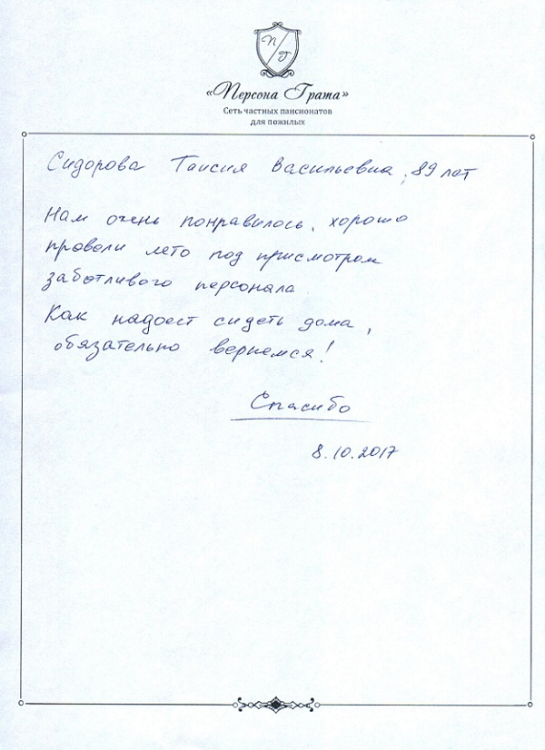 П Г
«Персона Грата»
Сеть частных пансионатов
для пожилых
Сидорова Таисия Васильевна, 89 лет
Нам очень понравилось, хорошо
провели лето под присмотром
заботливого персонала
Как надоест сидеть дома,
обязательно вернемся!
Спасибо
8.10.2017